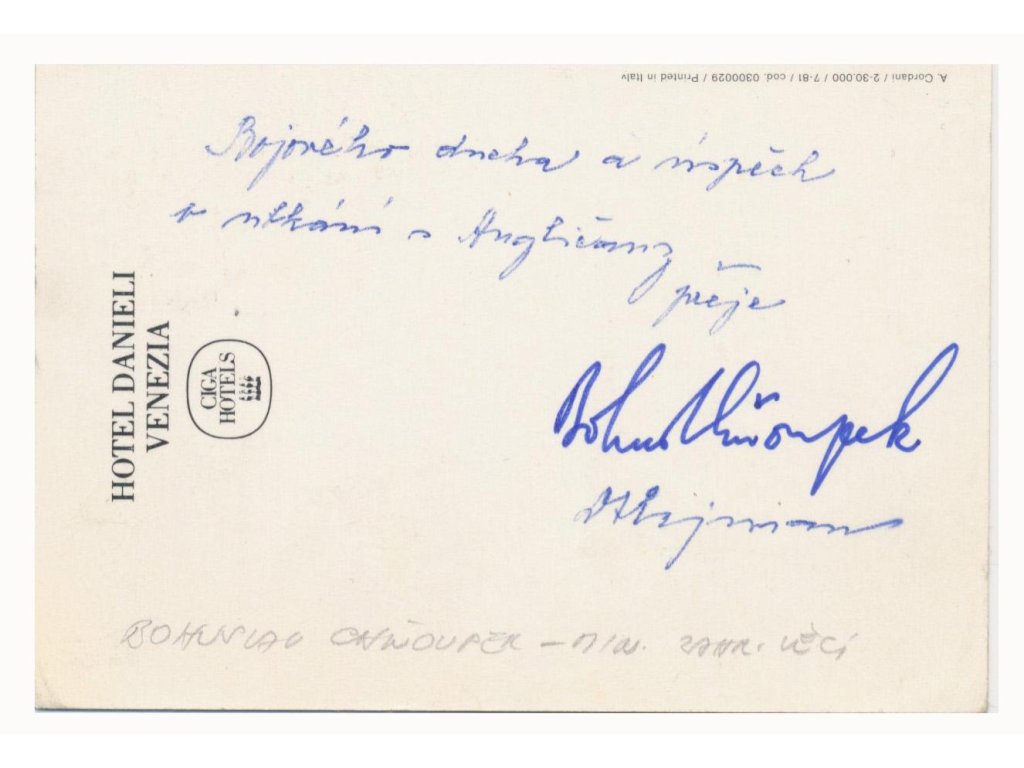 A. Cordani / 2-30.000 / 7-81 / cod. 0300029 / Printed in Italy
Bojového ducha a úspěch
v utkání s Angličany
přeje
HOTEL DANIELI
VENEZIA
CIGA
HOTELS
Bohuš Chňoupek
BOHUSLAV CHŇOUPEK - MIN. ZAHR. VĚCÍ